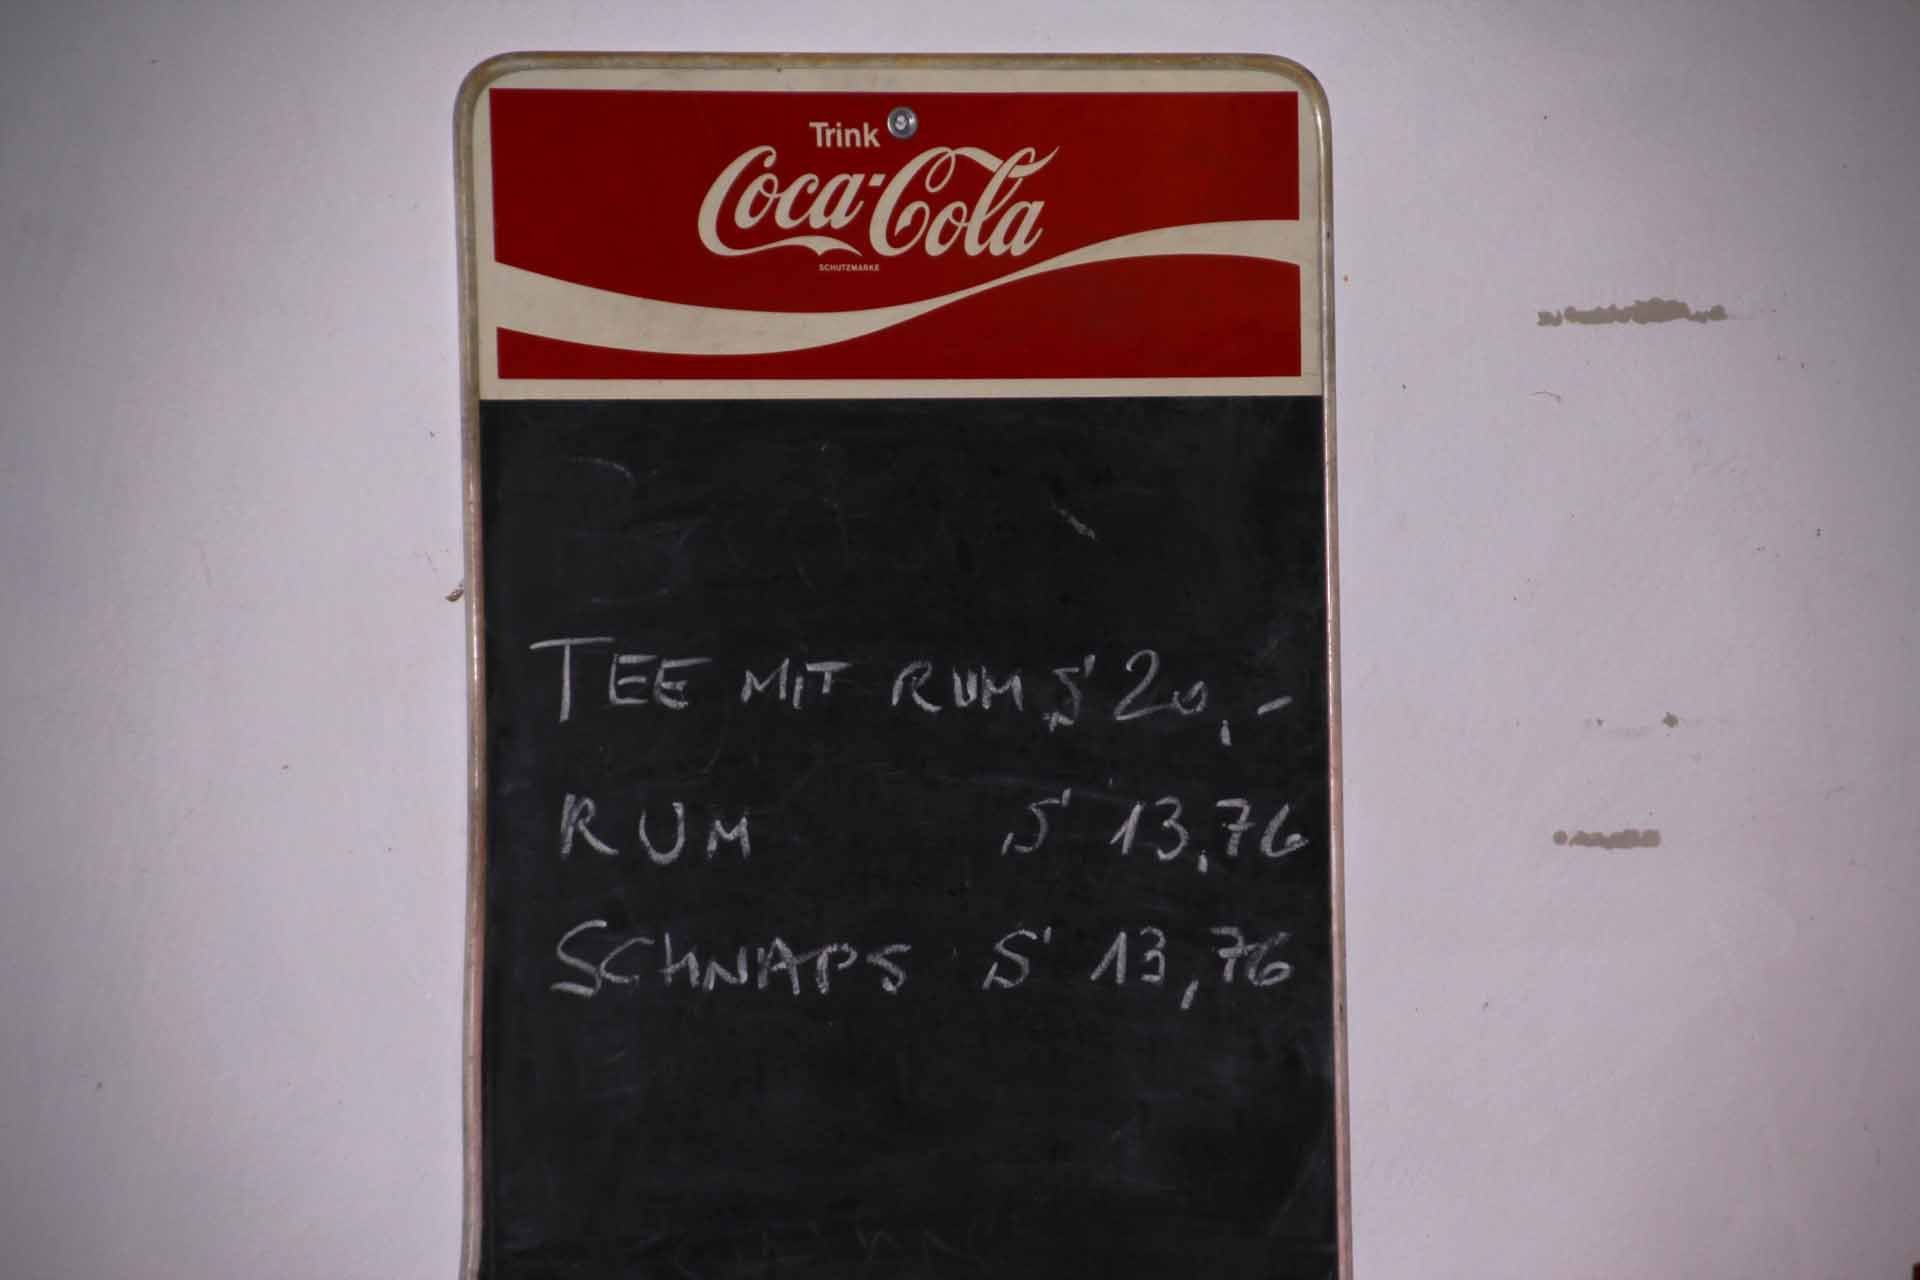 Trink
Coca-Cola
SCHUTZMARKE
TEE MIT RUM S 20,-
RUM S 13,76
SCHNAPS S 13,76